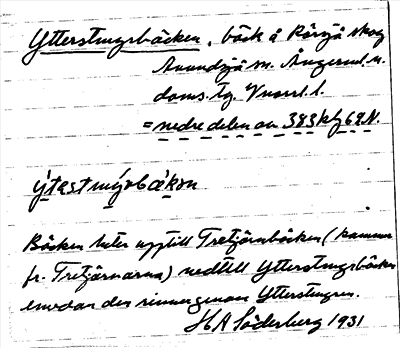 Ytterstmyrbäcken, bäck å Rörsjö skog
Anundsjö sn. Ångerml. n.
doms. tg. Vnorrl. l.
= nedre delen av 383 kf 69 N.
ýtastmýrbäkɔn
Bäcken heter upptill Tretjärnbäcken (kommer
fr. Tretjärnarna) nedtill Ytterstmyrbäcken
emedan den rinner genom Ytterstmyren.
H A Söderberg 1931